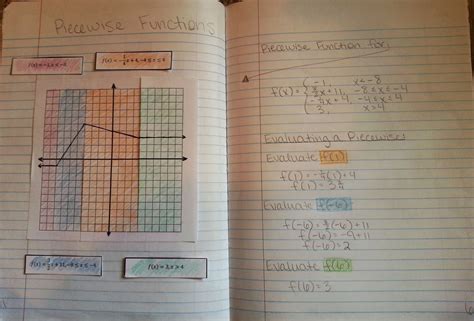 Piecewise Functions
f(x) = -1, x ≤ -8
f(x) = -1/4x + 4, -4 ≤ x ≤ 4
f(x) = 3, x > 4
Piecewise Function for:
f(x) = { -1, x < -8
3/2x + 11, -8 ≤ x < -4
-1/4x + 4, -4 ≤ x < 4
3, x > 4
Evaluating a Piecewise:
Evaluate f(1)
f(1) = -1/4(1) + 4
f(1) = 3 3/4
Evaluate f(-6)
f(-6) = 3/2(-6) + 11
f(-6) = -9 + 11
f(-6) = 2
Evaluate f(6)
f(6) = 3